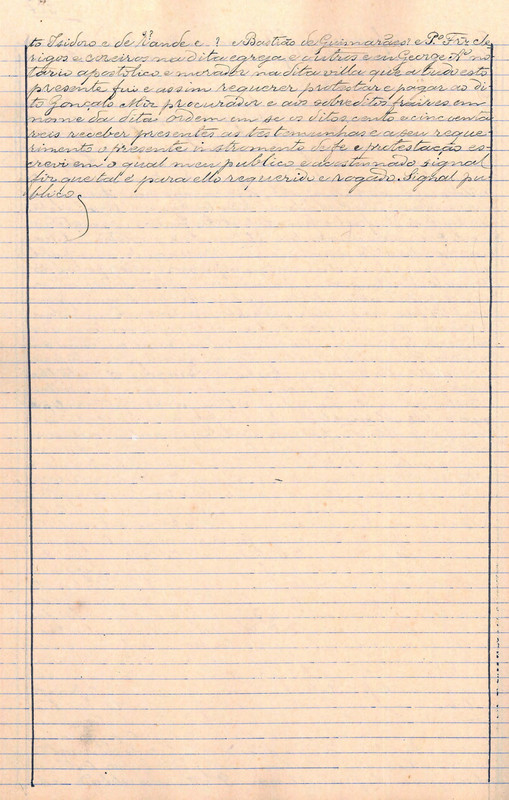 to Isidoro e de Vande e ? e Bastião de Guimarães? e P.º Frz cle-
rigos e coreiros na dita egreja e outros e eu George Rº no-
tario apostolico e morador na dita villa que a tudo esto
presente fui e assim requerer protestar e pagar ao di-
to Gonçalo Mir procurador e aos sobreditos frades em
nome da dita ordem em se os ditos cento e cincoenta
reis receber presentes as testemunhas e a seu reque-
rimento o presente instromento de fe e protestação es-
crevi em o qual meu publico e acostumado signal
fiz que tal é para ello requerido e rogado. Signal pu-
blico